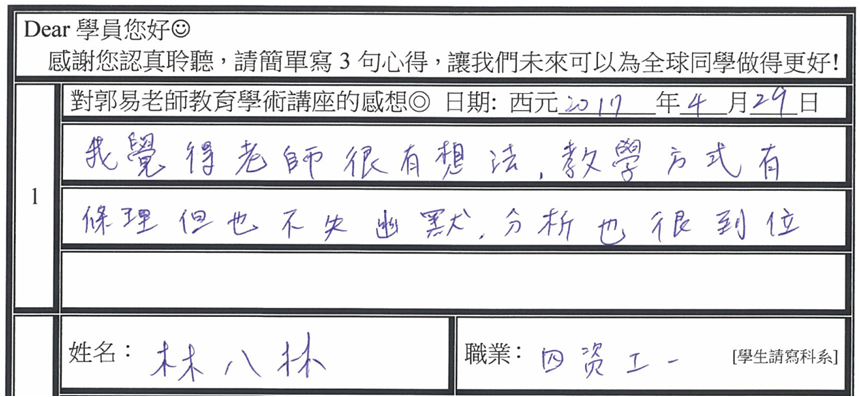 Dear 學員您好☺
感謝您認真聆聽，請簡單寫 3 句心得，讓我們未來可以為全球同學做得更好!
對郭易老師教育學術講座的感想◎ 日期: 西元2017年4月29日
1
我覺得老師很有想法，教學方式有
條理但也不失幽默，分析也很到位
姓名： 林八林
職業： 四資工一 [學生請寫科系]